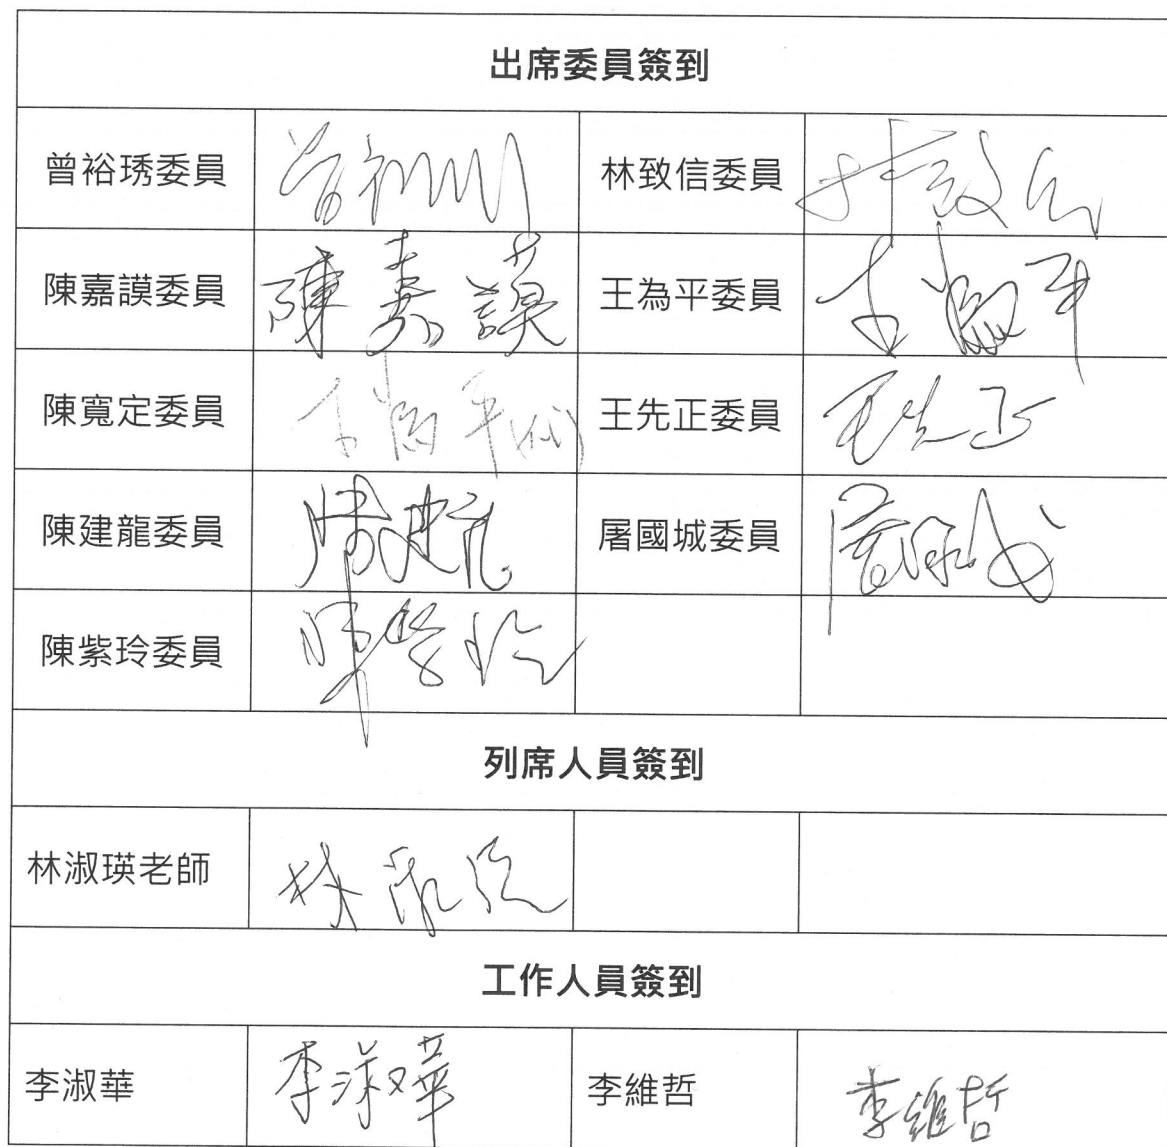 出席委員簽到
曾裕琇委員 林致信委員 林致信
陳嘉謨委員 陳嘉謨 王為平委員
陳寬定委員 王先正委員 王先正
陳建龍委員 陳建龍 屠國城委員 屠國城
陳紫玲委員 陳紫玲
列席人員簽到
林淑瑛老師 林淑瑛
工作人員簽到
李淑華 李淑華 李維哲 李維哲